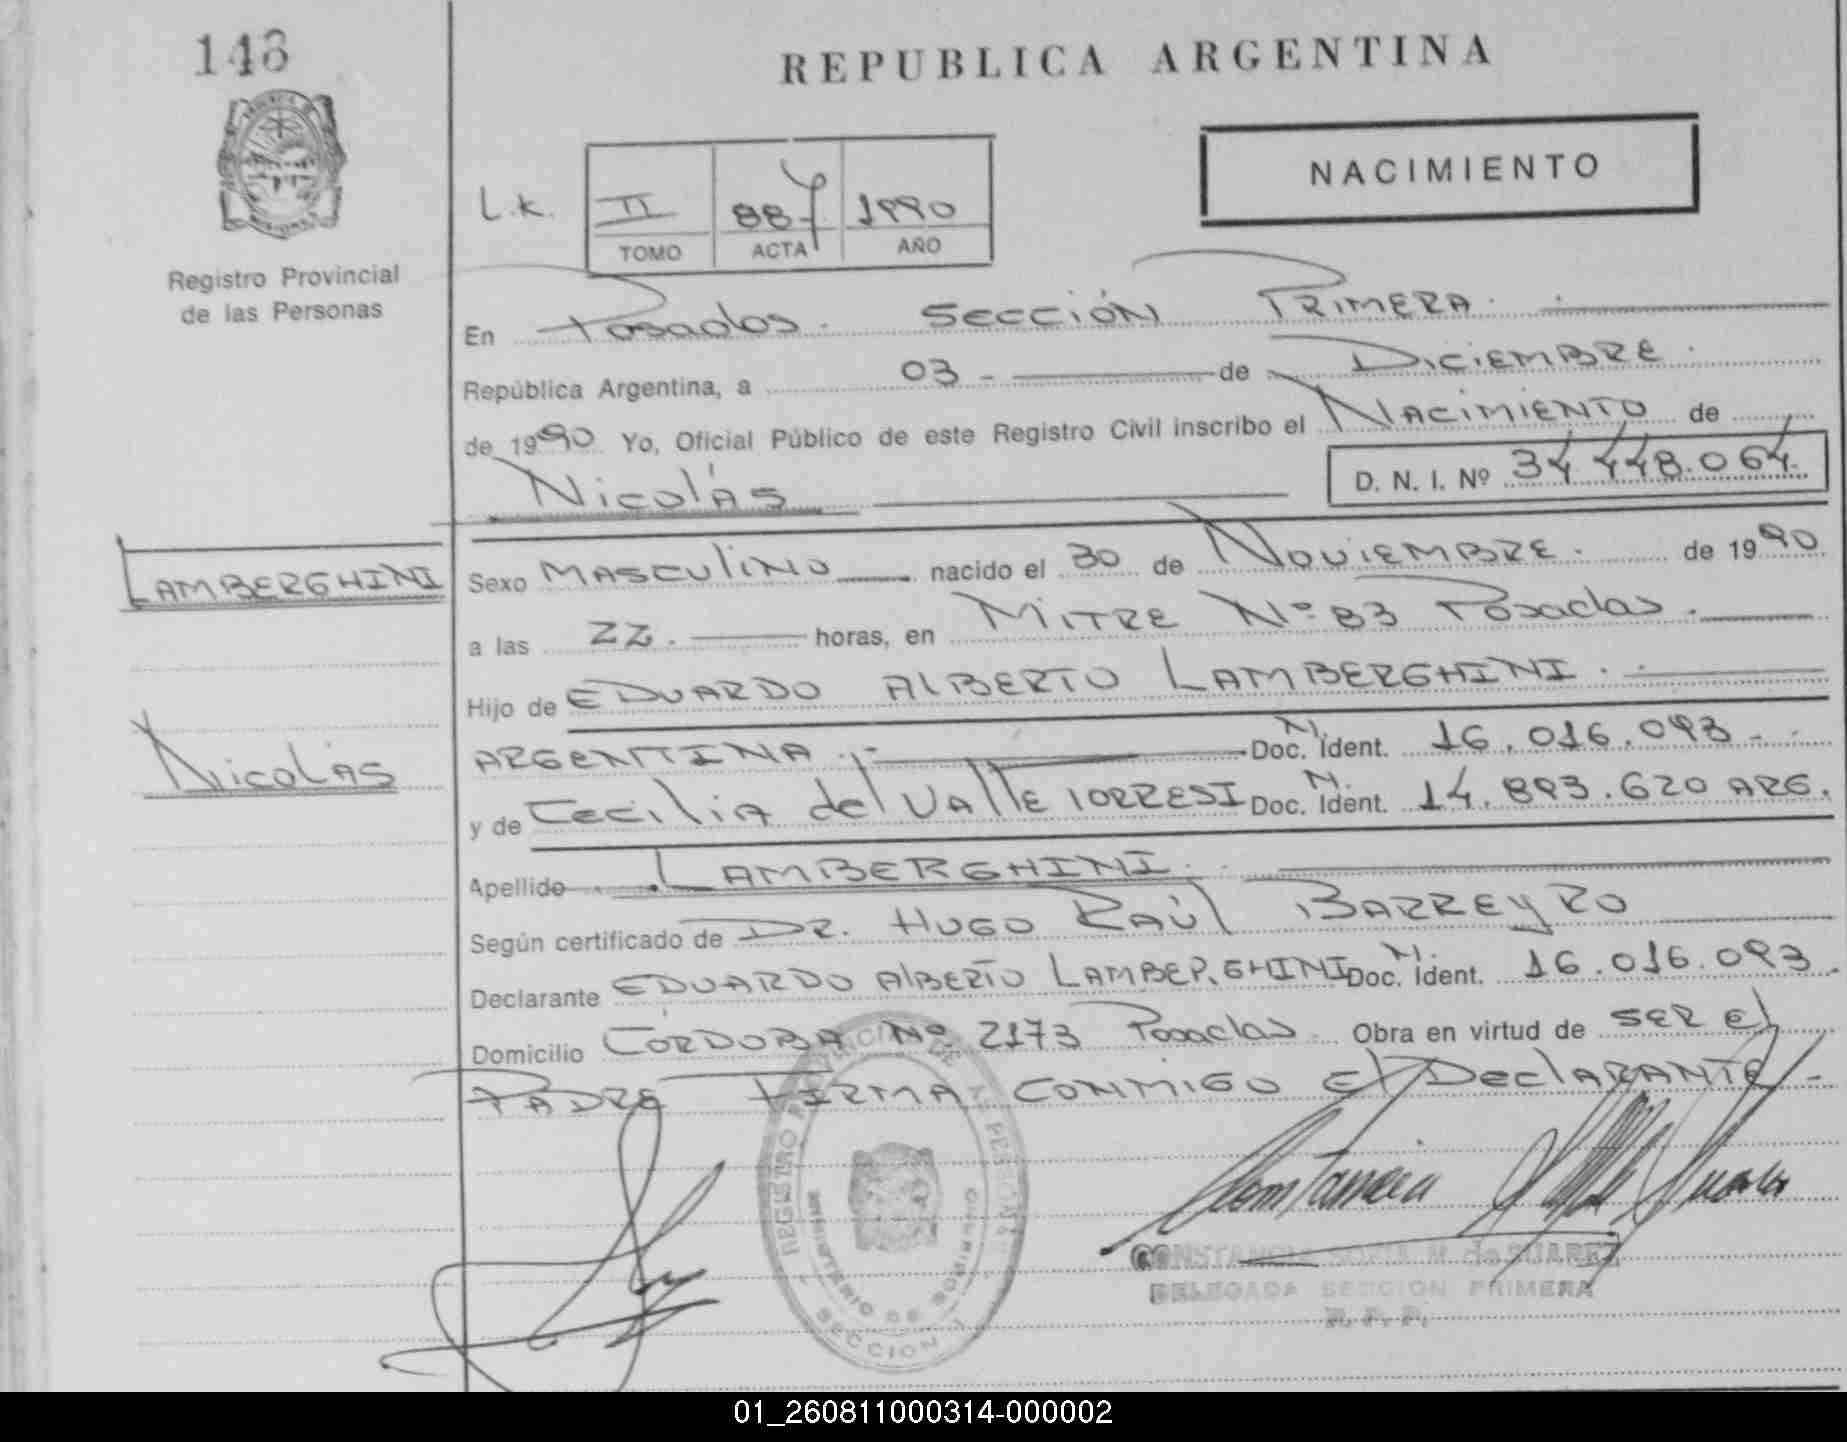 148
REPUBLICA ARGENTINA
NACIMIENTO
L.K. II 887 1990
TOMO ACTA AÑO
Registro Provincial
de las Personas
En Posadas. SECCIÓN PRIMERA.
República Argentina, a 03 - de DICIEMBRE.
de 1990 Yo, Oficial Público de este Registro Civil inscribo el NACIMIENTO de
NICOLÁS D. N. I. Nº 34.448.064.
LAMBERGHINI
NICOLÁS
Sexo MASCULINO nacido el 30 de NOVIEMBRE. de 1990
a las 22. horas, en MITRE Nº 83 Posadas.
Hijo de EDUARDO ALBERTO LAMBERGHINI.
ARGENTINA.- Doc. N. Ident. 16.016.093-
y de CECILIA del VALLE TORRESI Doc. N. Ident. 14.893.620 ARG.
Apellido LAMBERGHINI.
Según certificado de DR. HUGO RAÚL BARREYRO
Declarante EDUARDO ALBERTO LAMBERGHINI Doc. N. Ident. 16.016.093
Domicilio CÓRDOBA Nº 2173 Posadas. Obra en virtud de SER El
PADRE FIRMA CONMIGO El DEClARANTE -
REGISTRO PROVINCIAL DE LAS PERSONAS
MINISTERIO DE GOBIERNO
SECCION 1
CONSTANCIA SOFIA M. de SUAREZ
DELEGADA SECCION PRIMERA
R. P. P.
01_260811000314-000002